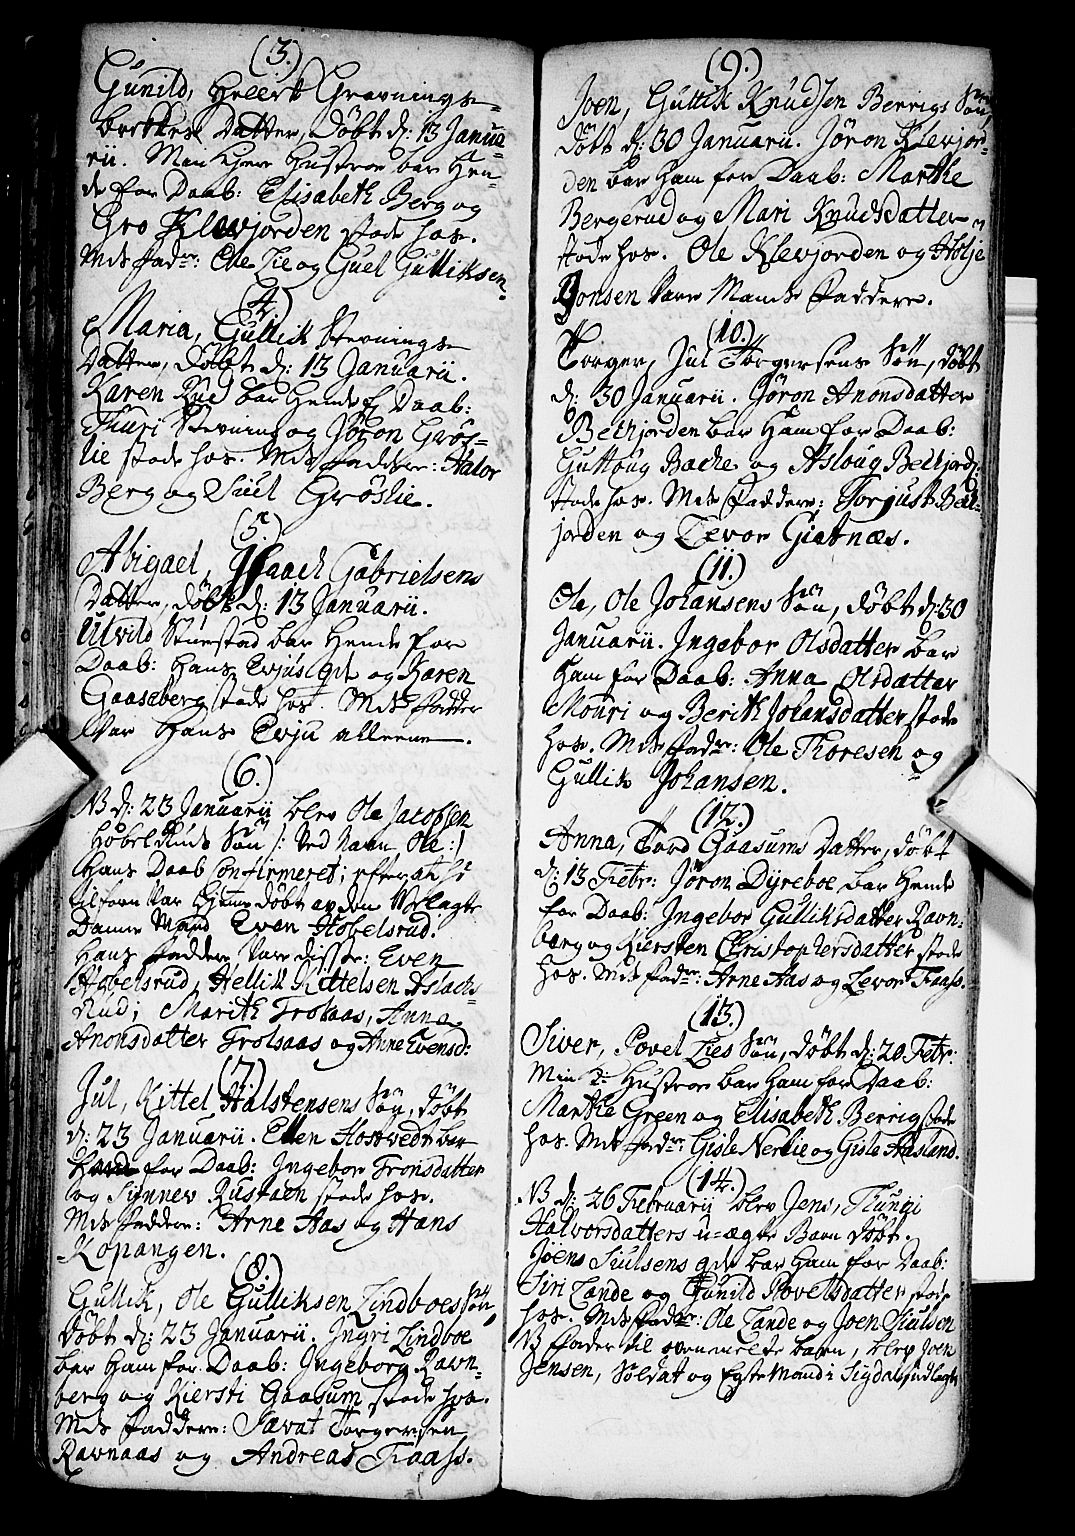 (3.)
Gunild, Heeert Gravnings-
brekkes Datter, döbt d: 13 Janua-
rii. Man Kier Hustroe bar Hen-
de for Daab: Elisabeth Berg og
Gro Klevjorden stode hos.
Mds fadr: Ole Lie og Guel Gulliksen.
(4.)
Maria, Gullik Stevnings
Datter, döbt d: 13 Januarii.
Karen Rue bar Hende f Daab:
Thuri Stevning og Jöron Grös-
lie stode hos. Mds faddere: Halvor
Berg og Siul Gröslie.
(5.)
Abigael, Isaach Gabrielsens
Datter, döbt d: 13 Januarii.
Utvild Stuestad bar Hende for
Daab: Hans Evjus qde og Karen
Gaaseberg stode hos. Mds fadder
Var Hans Evju alleene.
(6.)
NB d: 23 Januarii blev Ole Jacobsen
Hobelsruds Sön /: Ved Navn Ole :/
Hans Daab Confirmeret; efter at hã
tilforn Var Hjeme döbt av den
Danne Mand Even Hobelsrud.
Hans faddere Vare disse: Even
Hobelsrud, Hellik Kittelsen Aslachs-
Rud; Marith Frolsaas, Anna
Anonsdatter Frolsaas og Anne Evensd:
(7.)
Jul, Kittel Halstensens Sön, döbt
d: 23 Januarii. Ellen Hostvedt bar
for Daab: Ingebor Tronsdatter
og Synnev Rustaen stode hos.
Mds faddere: Arne Aas og Hans
Kopangen.
(8.)
Gullik, Ole Gulliksen Lindboes Sön,
döbt d: 23 Januarii. Ingri Lindboe
bar Ham for Daab: Ingeborg Ravn-
berg og Kiersti Gaasum stode hos.
Mds faddere: Sævat Torgersen
Ravnaas og Andreas Fraass.
(9.)
Joen, Gullik Knudsen Berrigs Sön,
döbt d: 30 Januarii. Jöron Klevjor-
den bar Ham for Daab: Marthe
Bergerud og Mari Knudsdatter
stode hos. Ole Klevjorden og Holje
Jonsen Vare Mands faddere.
(10.)
Torger, Jul Torgersens Sön, döbt
d: 30 Januarii. Jöron Anonsdatter
Bekhjorden bar Ham for Daab:
Guttoug Bache og Asloug Bekhjord:
stode hos. Mds faddere: Torjus Bek-
jorden og Levor Giatnæs.
(11.)
Ole, Ole Johansens Sön, döbt d: 30
Januarii. Ingebor Olsdatter bar
Ham for Daab: Anna Olsdatter
Mouri og Berith Johansdatter stode
hos. Mds fadr: Ole Thoresen og
Gullik Johansen.
(12.)
Anna, Tord Gaasums Datter, döbt
d: 13 Febr: Jöron Dyreboe bar Hende
for Daab: Ingebor Gulliksdatter Ravn-
berg og Kiersten Christophersdatter stode
hos. Mds fadr: Arne Aas og Levor Fraass.
(13.)
Siver, Povel Lies Sön, döbt d: 20 Febr:
Min Sl: Hustroe bar Ham for Daab:
Marthe Green og Elisabeth Berrig stode
hos. Mds fadr: Gisle Nerlie og Gisle Aasland.
(14.)
NB d: 26 Februarii blev Jens, Thurri
Halvorsdatters u-ægte Barn döbt.
Joens Siulsens qde bar Ham for Daab:
Siri Lande og Gunild Povelsdatter stode
hos. Mds fadr: Ole Lande og Joen Siulsen
NB Fader til ovenmelte barn, blev Joen
Jensen, Soldat og Egte Mand i Sigdal, udlagt